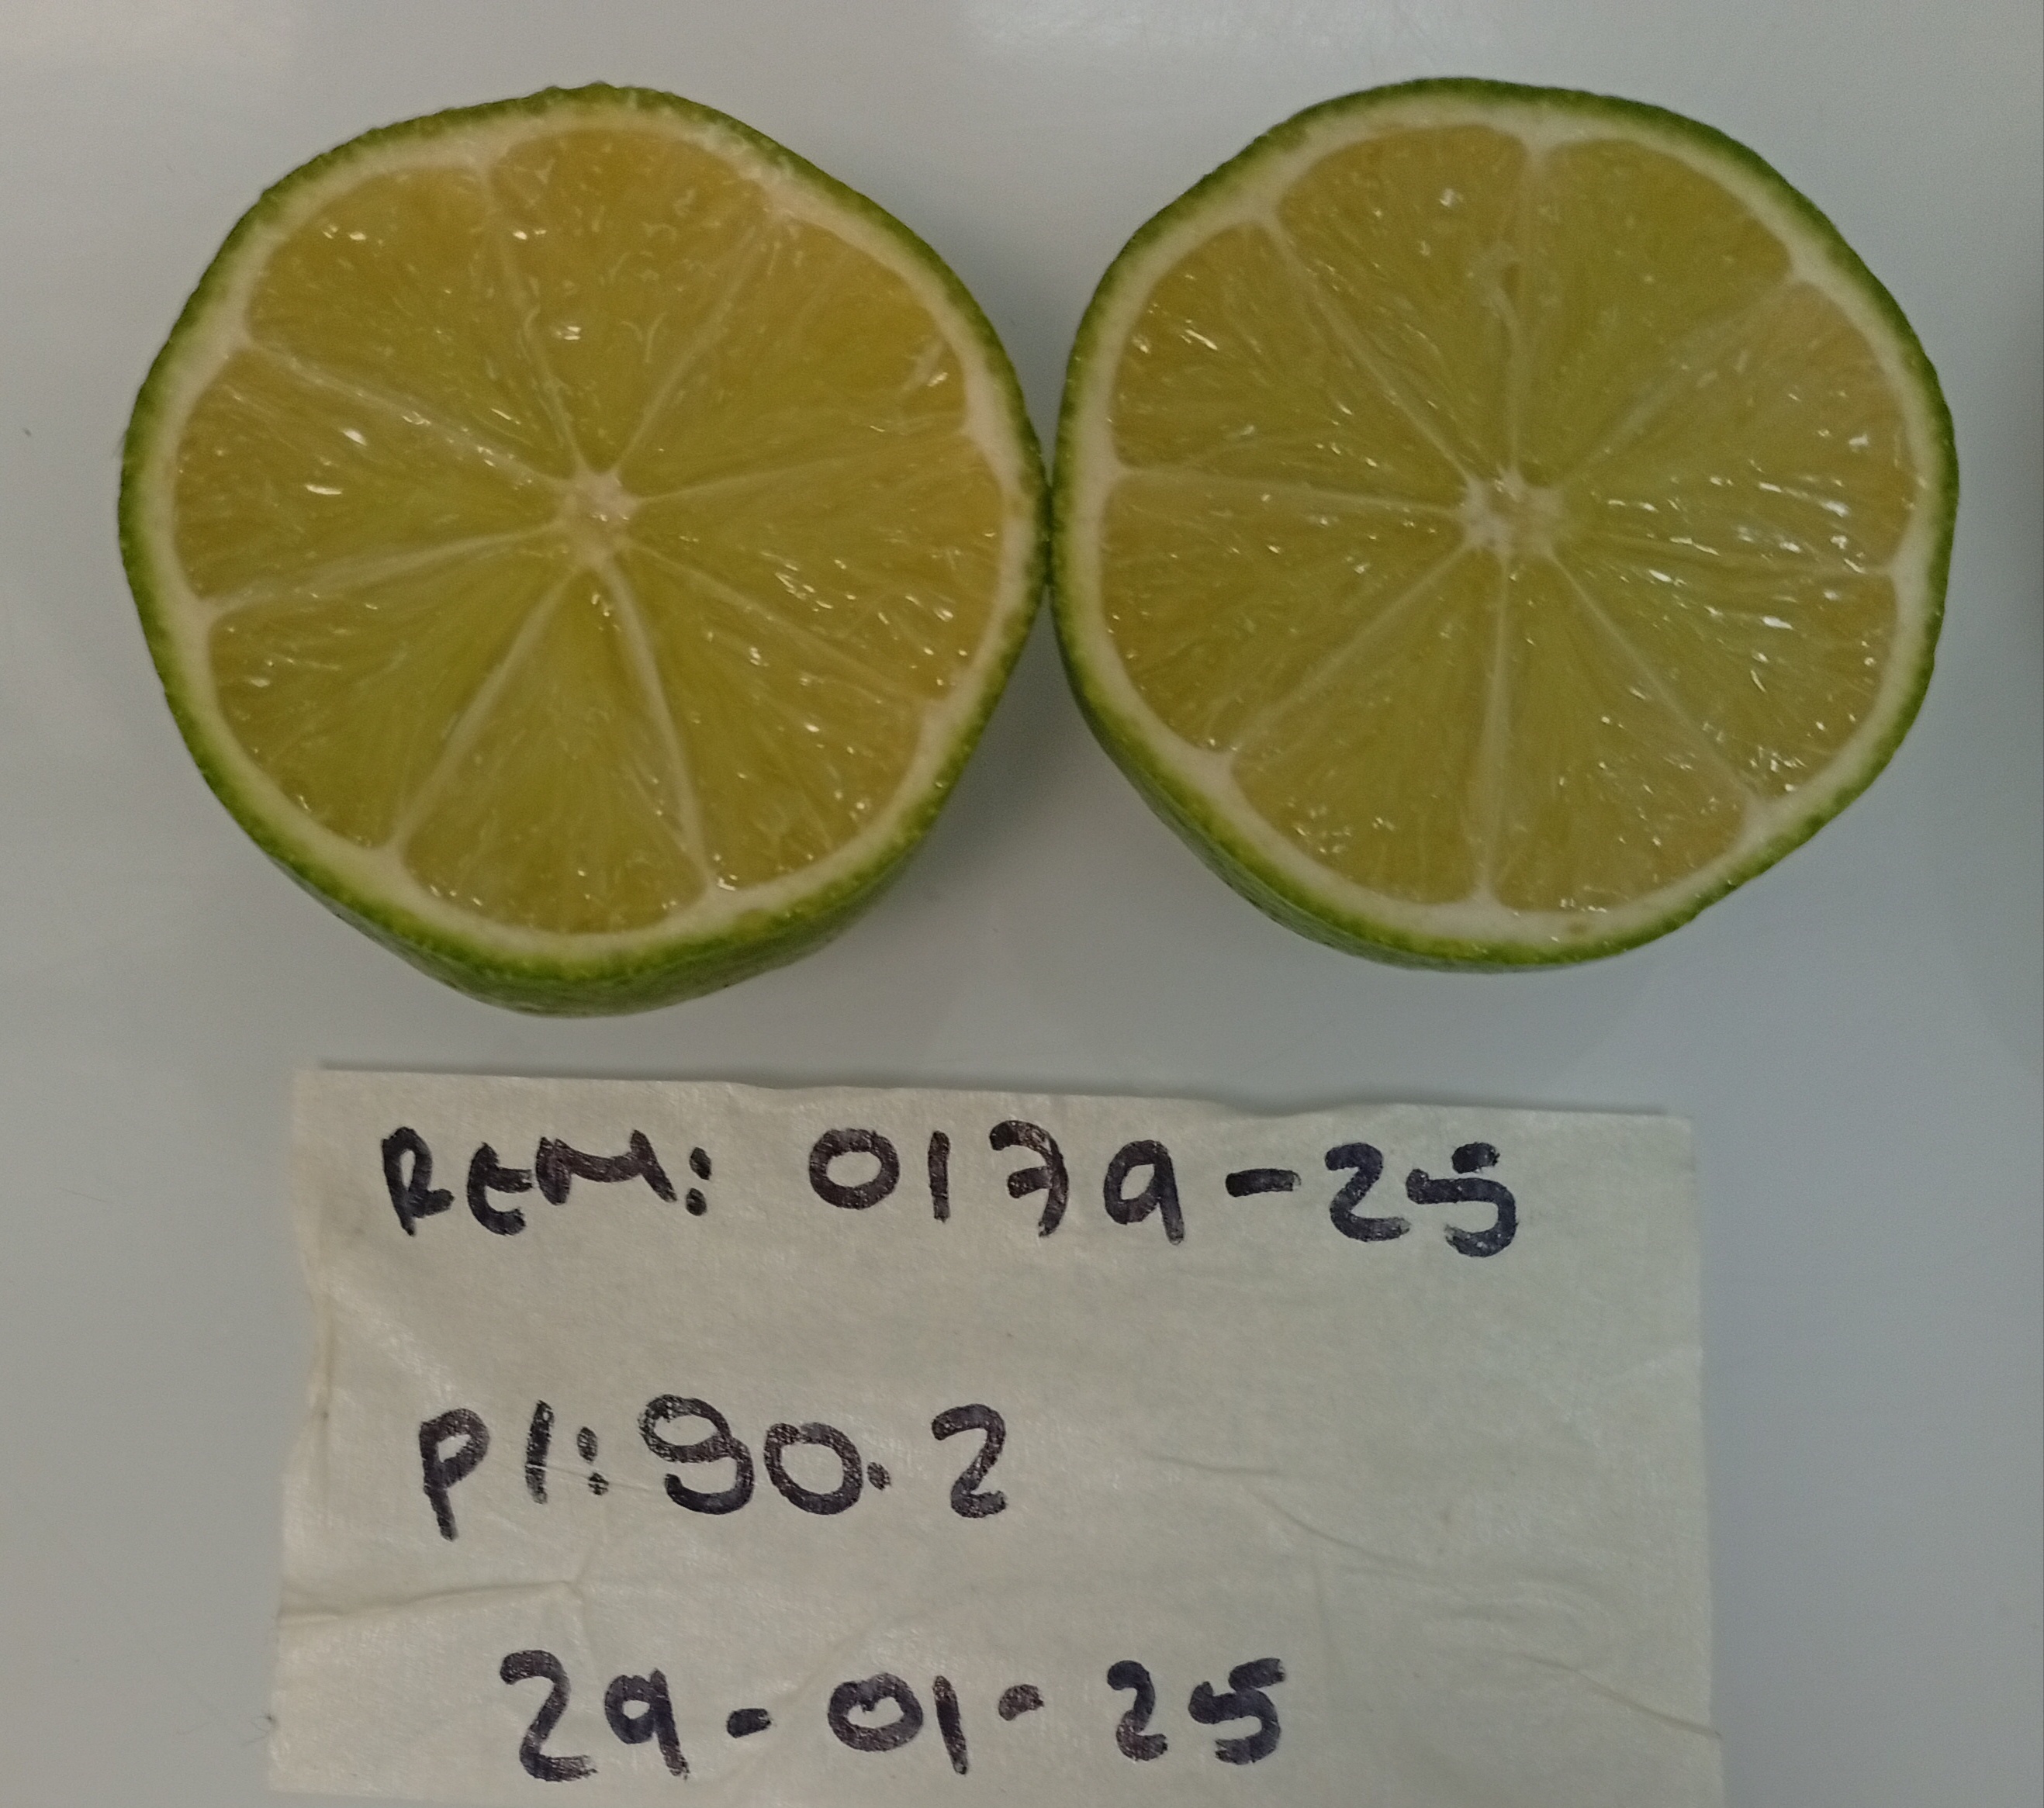 REM: 0179-25
PI: 90.2
29-01-25